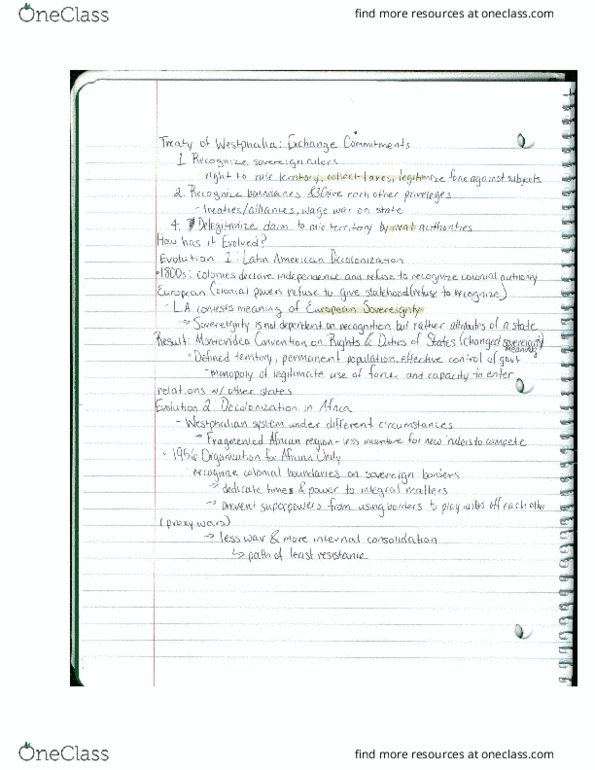 OneClass
find more resources at oneclass.com
Treaty of Westphalia: Exchange Commitments
1. Recognize sovereign rulers
- right to rule territory, collect taxes, legitimize force against subjects
2. Recognize boundaries &3Give each other privileges
- treaties/alliances, wage war on state
4. Delegitimize claim to rule territory by rival authorities
How has it Evolved?
Evolution 1: Latin American Decolonization
•1800s: colonies declare independence and refuse to recognize colonial authority
European (colonial powers refuse to give statehood (refuse to recognize)
- L.A contests meaning of European Sovereignty
→ Sovereignty is not dependent on recognition but rather attributes of a state
Result: Montevideo Convention on Rights & Duties of States (changed sovereignty meaning)
• Defined territory, permanent population, effective control of govt
- monopoly of legitimate use of force and capacity to enter
relations w/ other states
Evolution 2: Decolonization in Africa
- Westphalian system under different circumstances
→ Fragmented African region - less incentive for new rulers to compete
- Organization for African Unity
recognize colonial boundaries as sovereign borders
→ dedicate times & power to integral matters
→ prevent superpowers from using borders to play off each other
(proxy wars)
→ less war & more internal consolidation
↳ path of least resistance
OneClass
find more resources at oneclass.com